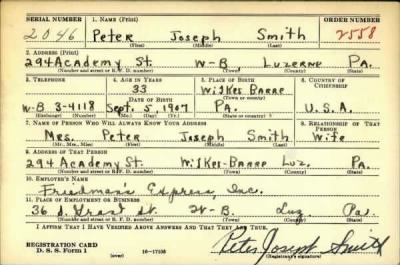 SERIAL NUMBER 1. NAME (Print) ORDER NUMBER
2046 Peter Joseph Smith 2558
(First) (Middle) (Last)
2. ADDRESS (Print)
294 Academy St. W-B. Luzerne Pa.
(Number and street or R. F. D. number) (Town) (County) (State)
3. TELEPHONE 4. AGE IN YEARS 5. PLACE OF BIRTH 6. COUNTRY OF CITIZENSHIP
33 Wilkes Barre
DATE OF BIRTH (Town or county)
W-B 3-4118 Sept. 5, 1907 Pa. U.S.A.
(Exchange) (Number) (Mo.) (Day) (Yr.) (State or country)
7. NAME OF PERSON WHO WILL ALWAYS KNOW YOUR ADDRESS 8. RELATIONSHIP OF THAT PERSON
Mrs. Peter Joseph Smith Wife
(Mr., Mrs., Miss) (First) (Middle) (Last)
9. ADDRESS OF THAT PERSON
294 Academy St. Wilkes-Barre Luz. Pa.
(Number and street or R. F. D. number) (Town) (County) (State)
10. EMPLOYER'S NAME
Friedman's Express, Inc.
11. PLACE OF EMPLOYMENT OR BUSINESS
36 S. Grant St. W-B. Luz. Pa.
(Number and street or R. F. D. number) (Town) (County) (State)
I AFFIRM THAT I HAVE VERIFIED ABOVE ANSWERS AND THAT THEY ARE TRUE.
REGISTRATION CARD
D. S. S. Form 1 16-17105 Peter Joseph Smith
(Registrant's signature)